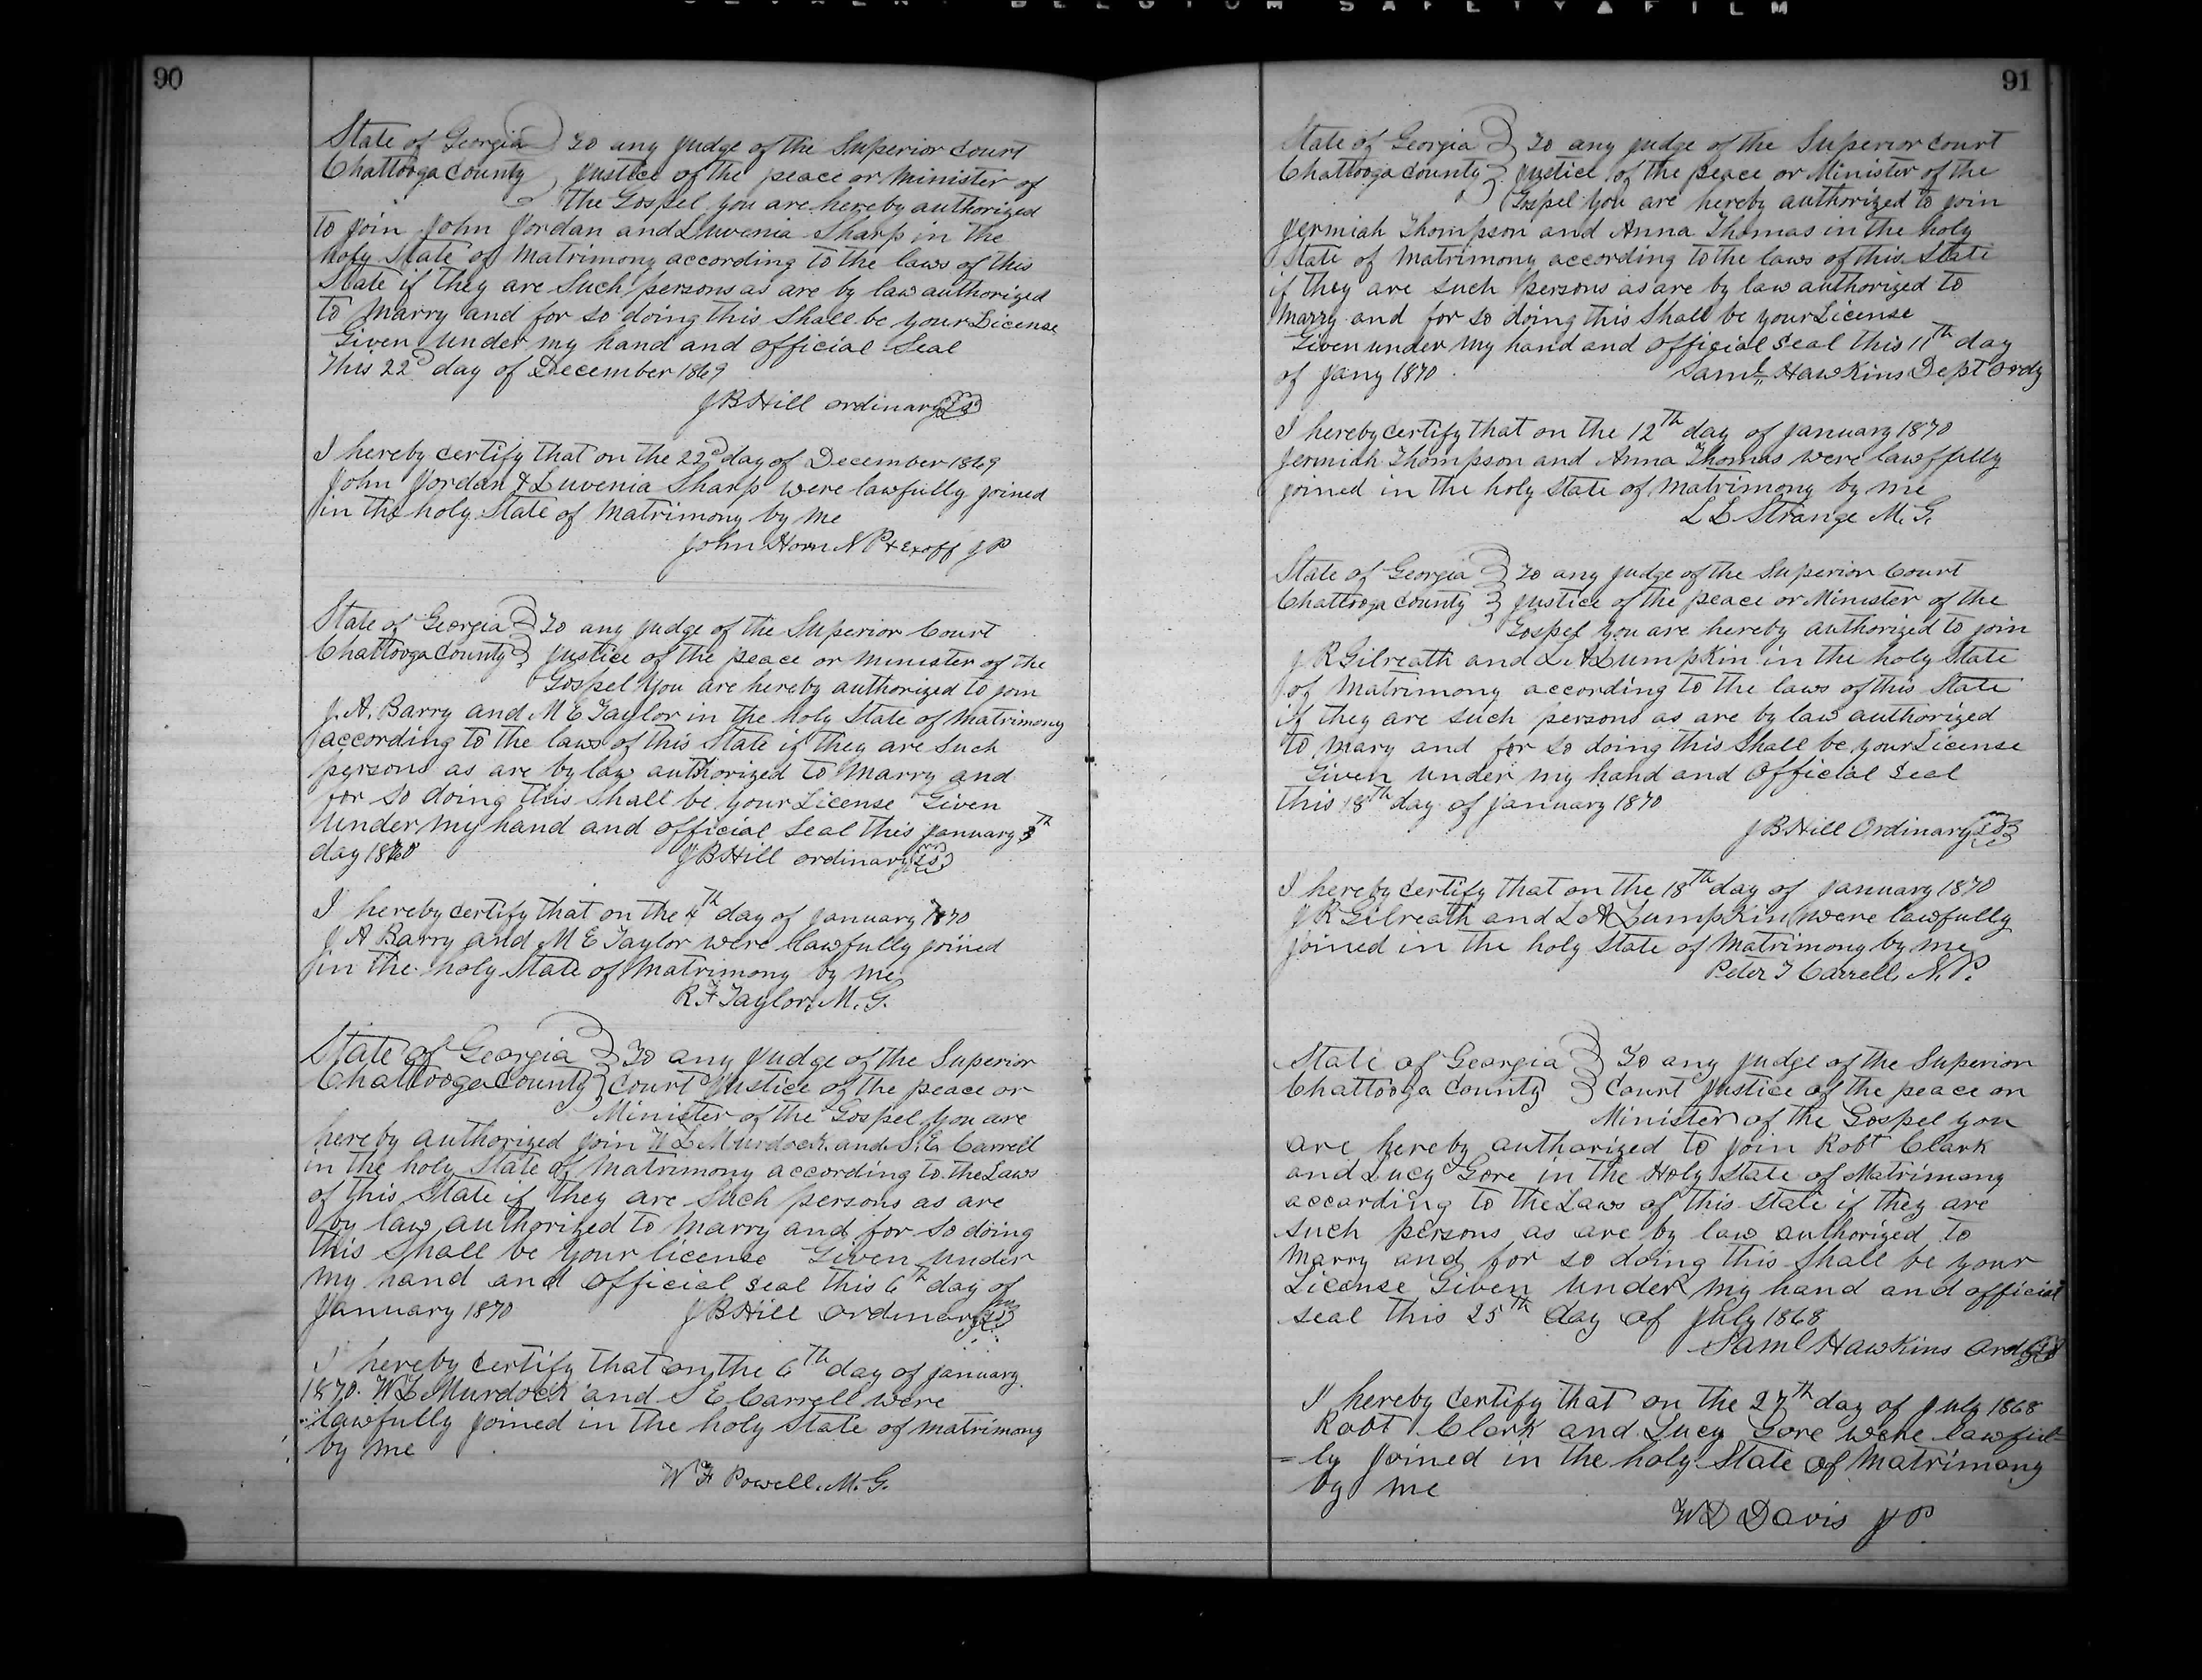 90
State of Georgia } To any Judge of the Superior Court
Chattooga County } Justice of the peace or Minister of
the Gospel you are hereby authorized
to join John Jordan and Luvenia Sharp in the
holy State of Matrimony according to the laws of this
State if they are Such persons as are by law authorized
to Marry and for so doing this Shall be your License
Given under my hand and official Seal
This 22d day of December 1869
J B Hill ordinary LS
I hereby certify that on the 22d day of December 1869
John Jordan & Luvenia Sharp were lawfully joined
in the holy State of Matrimony by me
John Horn N P & Exoff J P
State of Georgia } To any Judge of the Superior Court
Chattooga County } Justice of the peace or Minister of the
Gospel you are hereby authorized to join
J. A. Barry and M E Taylor in the holy State of Matrimony
according to the laws of this State if they are Such
persons as are by law authorized to Marry and
for so doing this Shall be your License Given
under my hand and official Seal this January 3th
day 1870 J B Hill ordinary LS
I hereby certify that on the 4th day of January 1870
J A Barry and M E Taylor were lawfully joined
in the holy State of Matrimony by me
R F Taylor, M. G.
State of Georgia } To any Judge of the Superior
Chattooga County } Court Justice of the peace or
Minister of the Gospel you are
hereby authorized join W L Murdock and S. E. Carrell
in the holy State of Matrimony according to the Laws
of this State if they are Such persons as are
by law authorized to Marry and for so doing
this Shall be your license Given under
my hand and official seal this 6th day of
January 1870 J B Hill ordinary LS
I hereby certify that on the 6th day of January
1870. W L Murdock and S E Carrell were
lawfully joined in the holy State of matrimony
by me
W F Powell. M. G.
91
State of Georgia } To any Judge of the Superior court
Chattooga County } Justice of the peace or Minister of the
Gospel you are hereby authorized to join
Jermiah Thompson and Anna Thomas in the holy
State of Matrimony according to the laws of this State
if they are such persons as are by law authorized to
Marry and for so doing this Shall be your License
Given under my hand and official seal this 11th day
of Jany 1870 Saml Hawkins Dept Ordy
I hereby certify that on the 12th day of January 1870
Jermiah Thompson and Anna Thomas were lawffully
joined in the holy state of Matrimony by me
L L Strange M. G.
State of Georgia } To any Judge of the Superior Court
Chattooga County } Justice of the peace or Minister of the
Gospel you are hereby authorized to join
J R Gilreath and L A Lumpkin in the holy State
of Matrimony according to the laws of this State
if they are such persons as are by law authorized
to mary and for so doing this Shall be your License
Given under my hand and Official seal
this 18th day of January 1870
J B Hill Ordinary LS
I hereby certify that on the 18th day of January 1870
J R Gilreath and L A Lumpkin were lawfully
joined in the holy State of Matrimony by me
Peter T Carrell, N. P.
State of Georgia } To any Judge of the Superior
Chattooga County } Court Justice of the peace or
Minister of the Gospel you
are hereby authorized to join Robt Clark
and Lucy Gore in the Holy State of Matrimony
according to the Laws of this State if they are
such persons as are by law authorized to
Marry and for so doing this Shall be your
License Given under my hand and official
seal this 25th day of July 1868
Saml Hawkins Ord LS
I hereby certify that on the 27th day of July 1868
Robt Clark and Lucy Gore were lawful-
-ly joined in the holy State of Matrimony
by me
W D Davis J P